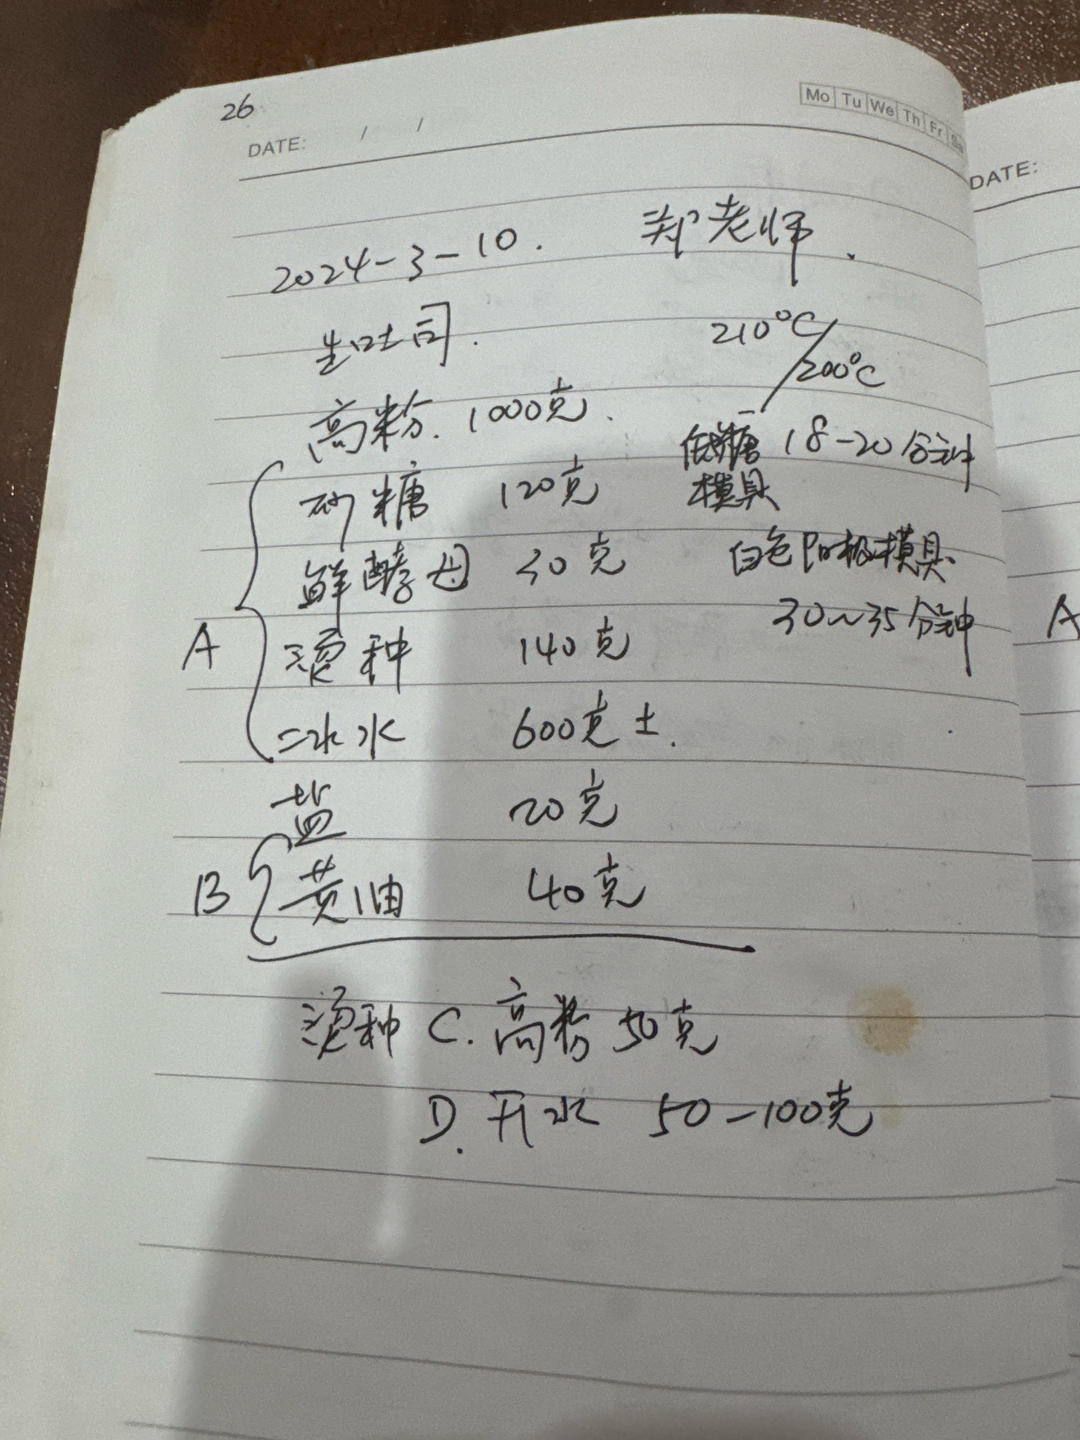 26
Mo Tu We Th Fr Sa
DATE: / /
DATE:
2024-3-10. 郑老师.
生吐司.
210°C/200°C
高粉. 1000克.
低糖模具 18-20分钟
A
砂糖 120克
鲜酵母 30克
白色阳极模具
30~35分钟
烫种 140克
冰水 600克±.
盐 20克
B 黄油 40克
烫种 C. 高粉 50克
D. 开水 50-100克
A